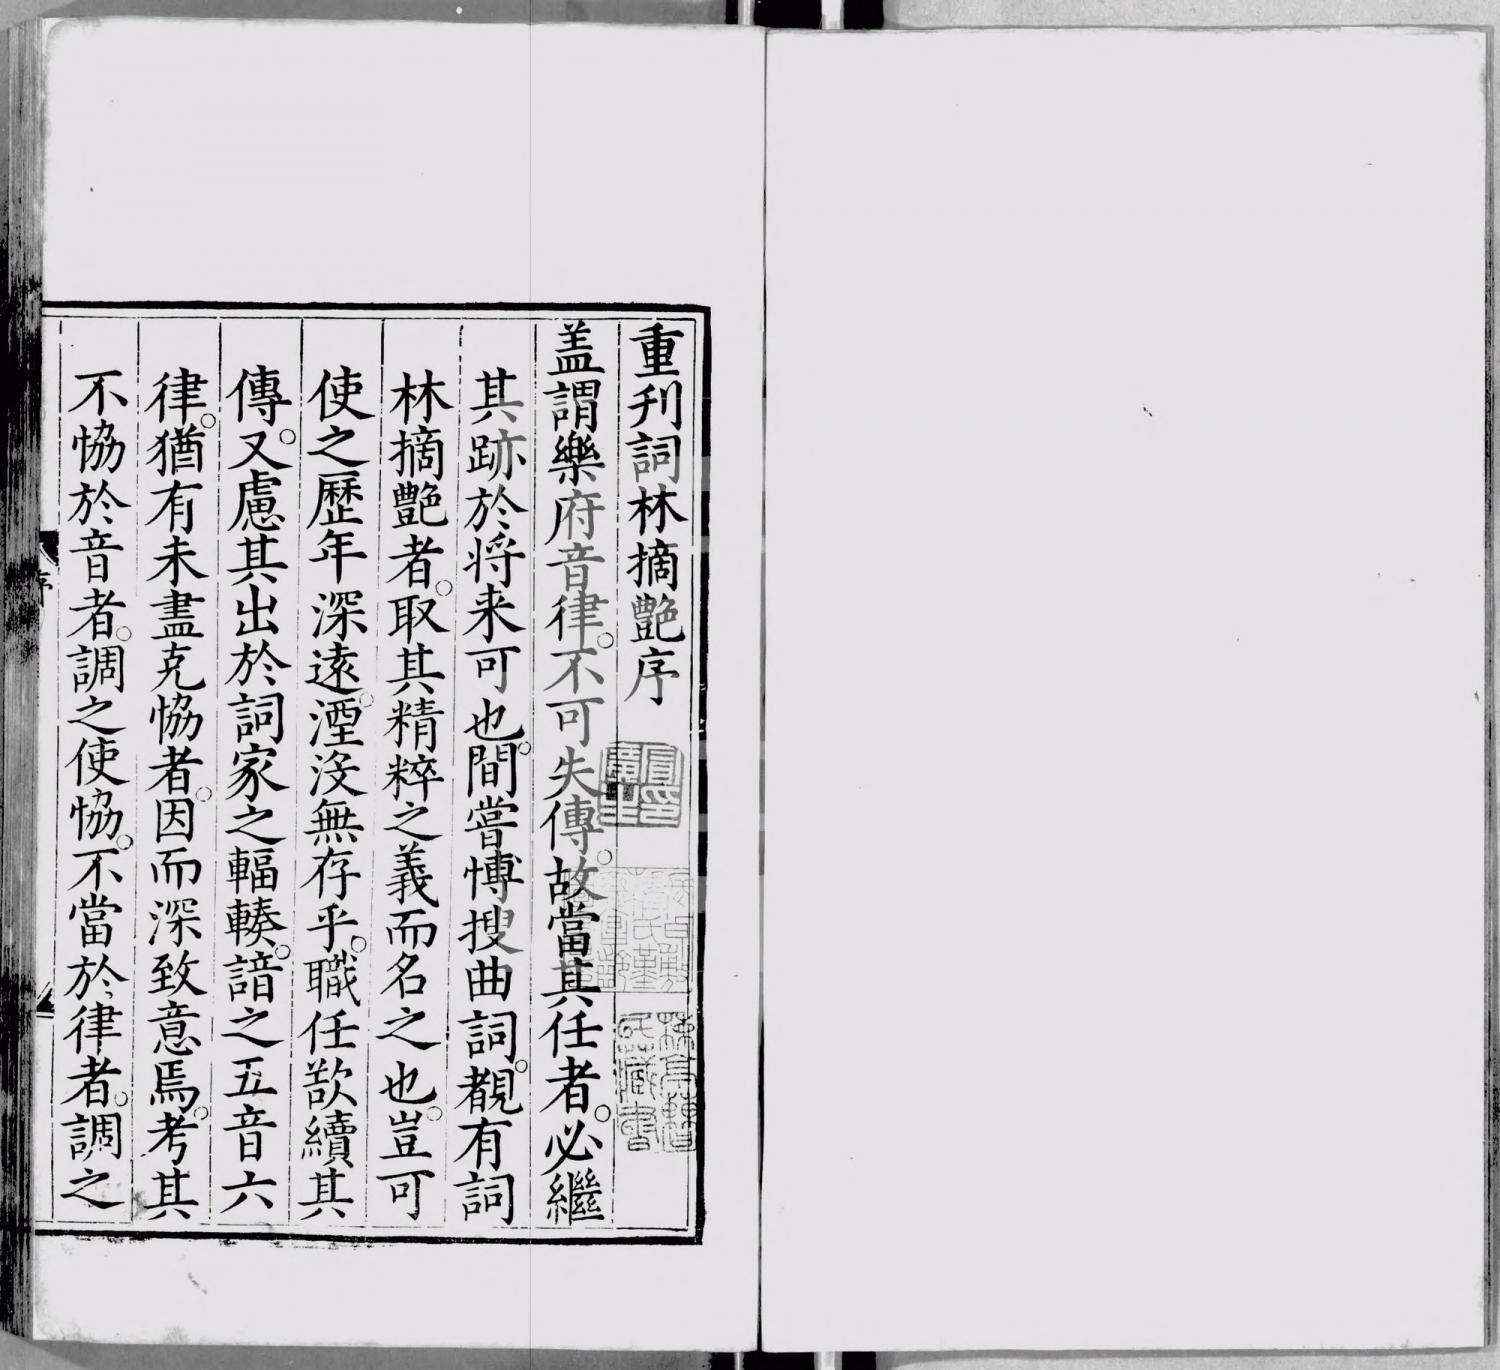 重刋詞林摘艷序
盖謂樂府音律。不可失傳。故當其任者。必繼
其跡於将来可也。間嘗愽搜曲詞。覩有詞
林摘艷者。取其精粹之義而名之也。豈可
使之歷年深遠。湮没無存乎。職任歘續其
傳。又慮其出於詞家之輻輳。諳之五音六
律。猶有未盡克恊者。因而深致意焉。考其
不恊於音者。調之使恊。不當於律者。調之
序